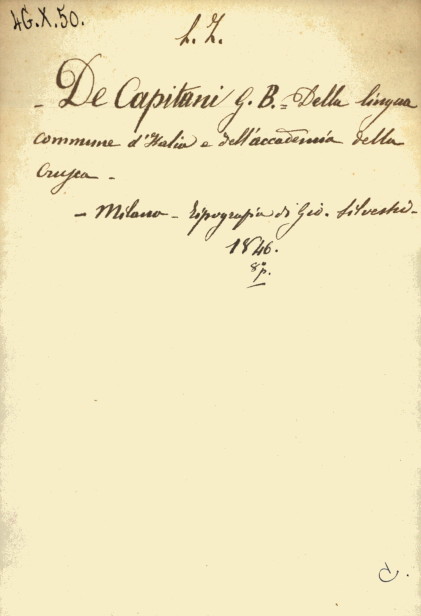 4G.X.50.
L. Z.
- De Capitani G. B. = Della lingua
commune d'Italia e dell'accademia della
Crusca -
- Milano - Tipografia di Gio. Silvestri -
1846.
8°p.